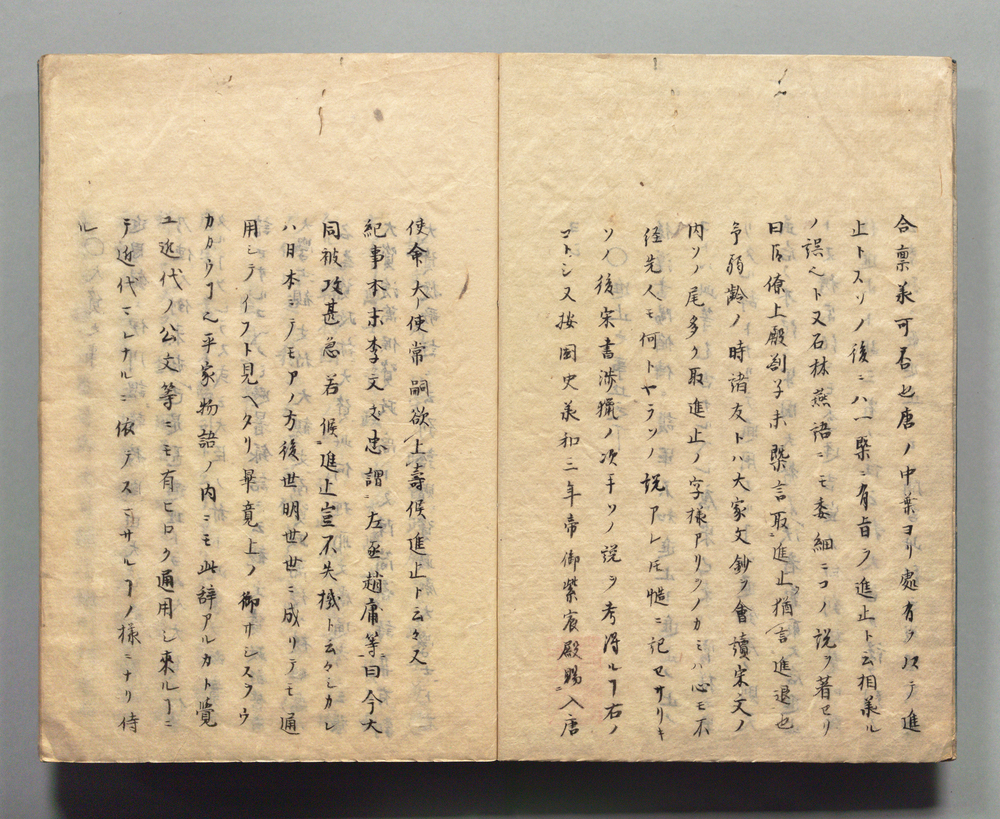 合稟承可否也唐ノ中葉ヨリ處有ヲステ進
止トスソノ後ニハ一槩ニ有旨ヲ進止ト云相承ル
ノ誤也ト又石林燕語ニモ委細ニコノ説ヲ著セリ
曰臣僚上殿劄子末槩言取進止猶言進退也
予弱齢ノ時諸友トハ大家文鈔ヲ會讀宋文ノ
内ソノ尾多ク取進止ノ字様アリソノカミハ心モ不
経先人モ何トヤラソノ説アレ𪜈慥ニ記セサリキ
ソノ後宋書渉獵ノ次手ソノ説ヲ考得ルヿ右ノ
コトシ又按國史承和三年帝御紫宸殿賜入唐
使命大使常嗣欲上壽候進止ト云々又
紀事本末李文文忠謂左丞趙庸等曰今大
同被攻甚急若候進止豈不失機ト云々シカレ
ハ日本ニテモアノ方後世明世世ニ成リテモ通
用シテイフト見ヘタリ畢竟上ノ御サシスヲウ
カカウヿ也平家物語ノ内ニモ此辞アルカト覺
ユ近代ノ公文等ニモ有ヒロク通用し來ルヿニ
テ近代ニシナルニ依テスマサルヿノ様ニナリ侍
ル